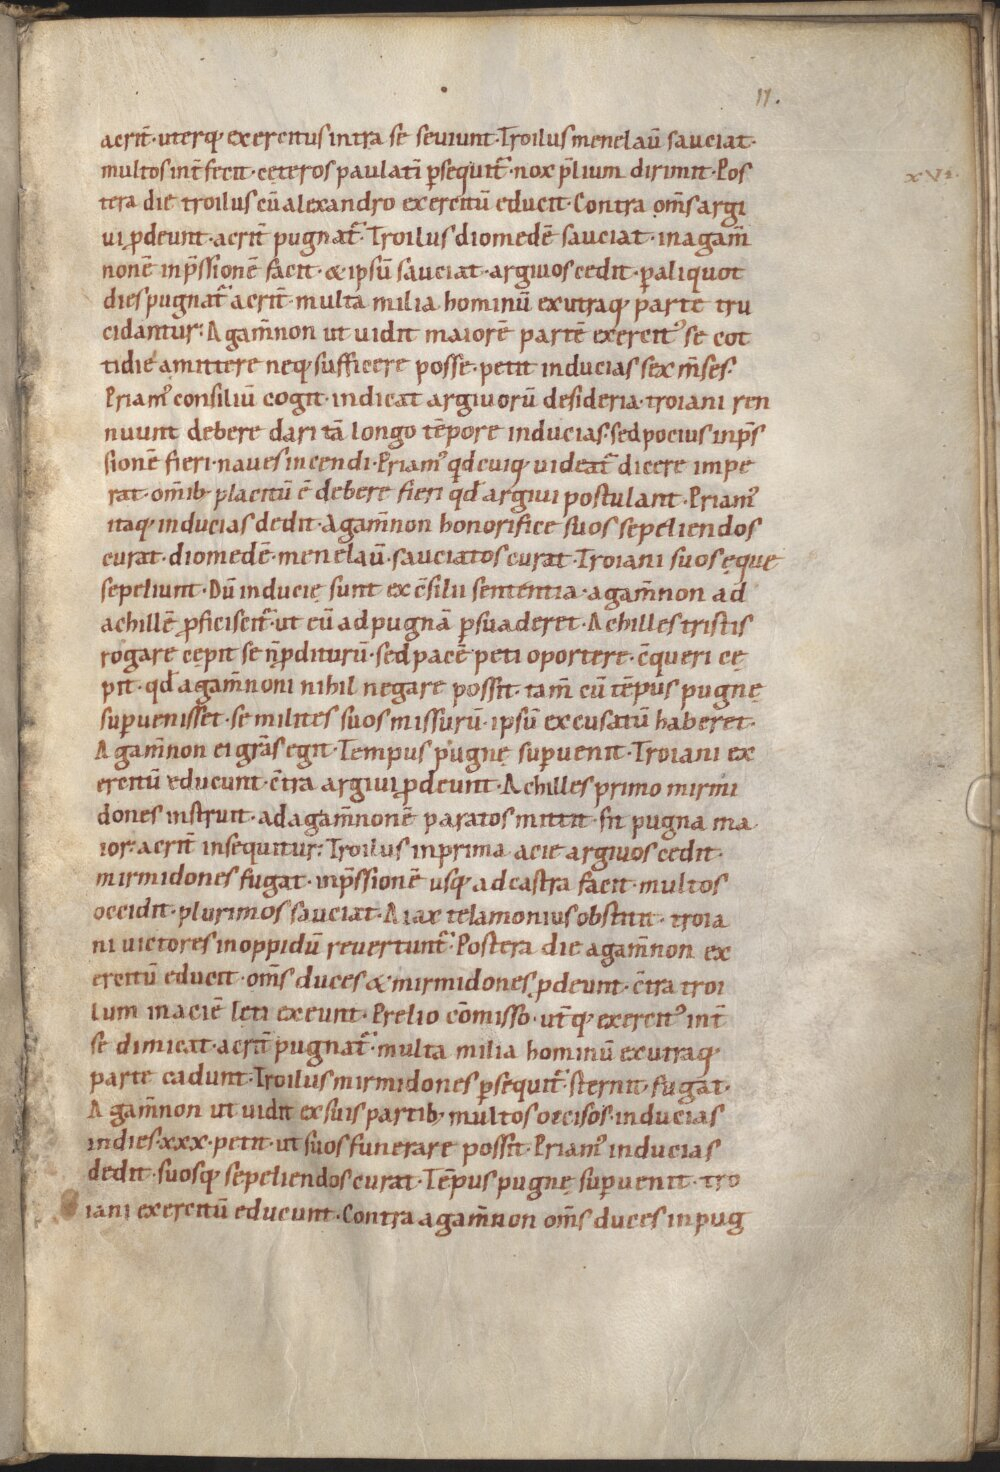 11.
acrit̄·uterq; exercitus intra se seuiunt·Troilus menelaū sauciat·
multos int̄fecit·cęteros paulatī ꝑsequit᷑·nox p̄lium dirimit·Pos
xvi.
tera die troilus cū alexandro exercitū educit·Contra om̄s argi
ui ꝓdeunt·acrit̄ pugnat᷑·Troilus diomedē sauciat·in agam̄
nonē inp̄ssionē facit·& ipsū sauciat·argiuos cedit·ꝑ aliquot
dies pugnat᷑ acrit̄·multa milia hominū ex utraq; parte tru
cidantur: Agam̄non ut uidit maiorē partē exercit᷒ se cot
tidie amittere neq; sufficere posse·petit inducias sex m̄ses·
Priam᷒ consiliū cogit·indicat argiuorū desideria·troiani ren
nuunt debere dari tā longo tēpore inducias·sed pocius inp̄s
sionē fieri·naues incendi·Priam᷒ qd̄ cuiq; uideat᷑ dicere impe
rat·om̄ib; placitū ē debere fieri qd̄ argiui postulant·Priam᷒
itaq; inducias dedit·Agam̄non honorifice suos sepeliendos
curat·diomedē·menelaū·sauciatos curat·Troiani suos ęque
sepeliunt·Dū inducię sunt ex c̄silii sententia·agam̄non ad
achillē ꝓficiscit᷑·ut eū ad pugnā ꝑsuaderet·Achilles tristis
rogare cepit se n̄ ꝓditurū·sed pacē peti oportere·c̄queri cę
pit·qd̄ agam̄noni nihil negare possit·tam̄ cū tēpus pugnę
suꝑuenisset·se milites suos missurū·ipsū excusatū haberet·
Agam̄non ei grās egit·Tempus pugnę suꝑuenit·Troiani ex
ercitū educunt·c̄tra argiui ꝓdeunt·Achilles primo mirmi
dones instruit·ad agam̄nonē paratos mittit·fit pugna ma
ior: acrit̄ insequitur: Troilus in prima acie argiuos cedit·
mirmidones fugat·inp̄ssionē usq; ad castra facit·multos
occidit·plurimos sauciat·Aiax telamonius obstitit·troia
ni uictores in oppidū reuertunt᷑·Postera die agam̄non ex
ercitū educit·om̄s duces & mirmidones ꝓdeunt·c̄tra troi
lum in aciē lęti exeunt·Prelio cōmisso·ut̄q; exercit᷒ int̄
se dimicat·acrit̄ pugnat᷑·multa milia hominū ex utraq;
parte cadunt·Troilus mirmidones ꝑsequit᷑·sternit·fugat·
Agam̄non ut uidit ex suis partib; multos occisos·inducias
in dies·xxx·petit·ut suos funerare possit·Priam᷒ inducias
dedit·suosq; sepeliendos curat·Tēpus pugnę suꝑuenit·tro
iani exercitū educunt·Contra agam̄non om̄s duces in pug